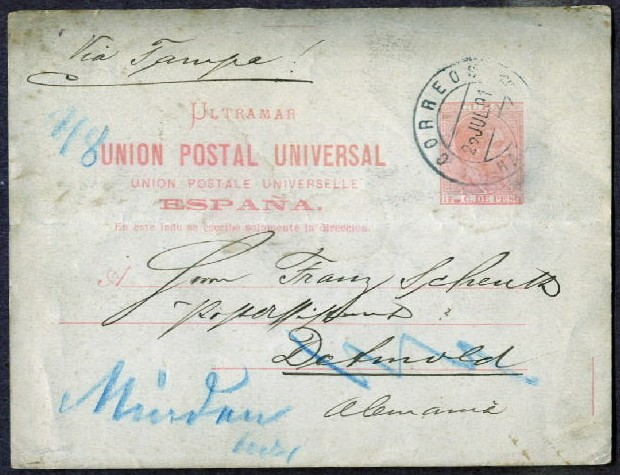 Via Tampa!
7/8
ULTRAMAR
UNION POSTAL UNIVERSAL
UNION POSTALE UNIVERSELLE
ESPAÑA.
En este lado se escribe solamente la direccion.
CORREOS
29 JUL 91
C. DE PESO
A Herrn Franz Scheuth
Postassistent
Detmold
Alemania
Minden